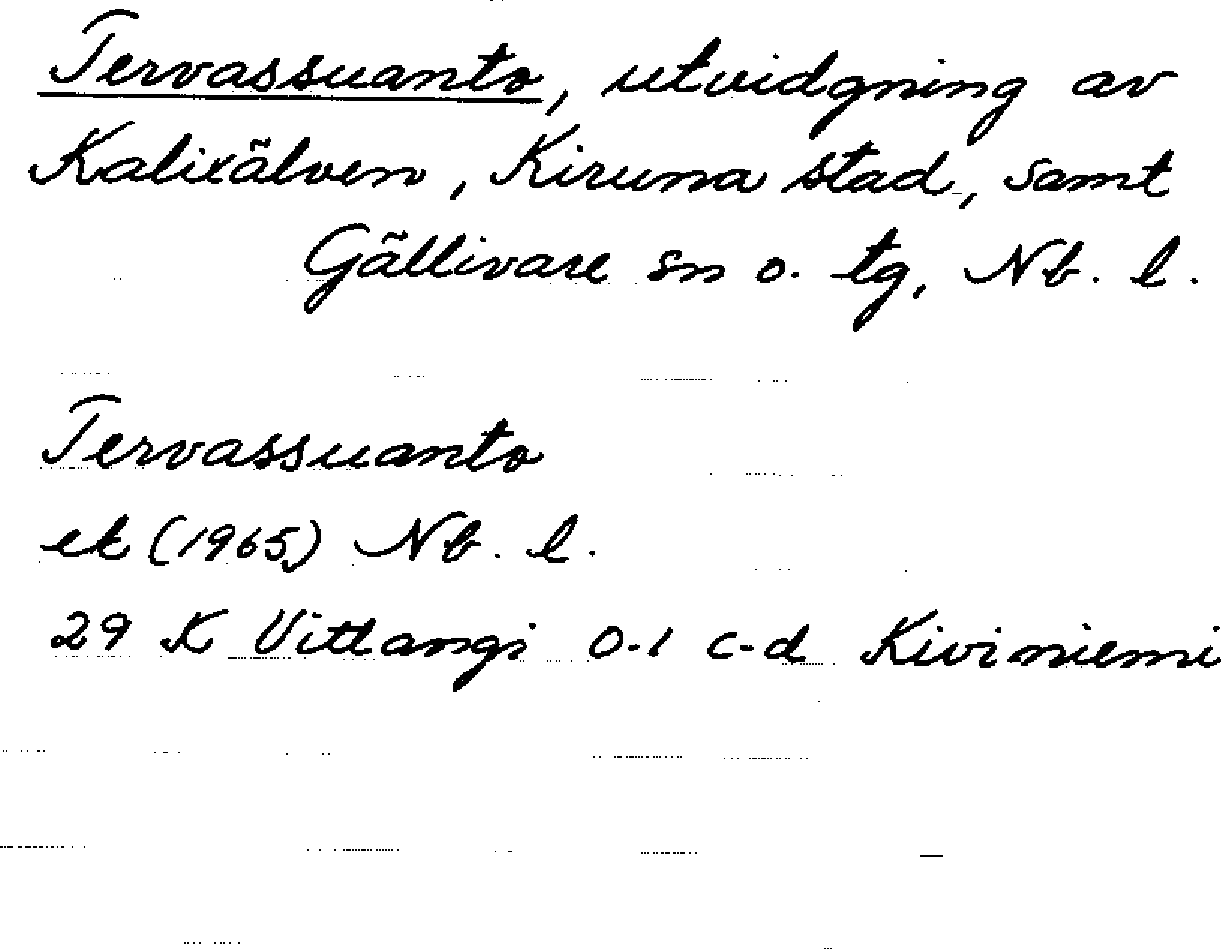 Tervassuanto, utvidgning av
Kalixälven, Kiruna stad, samt
Gällivare sn o. tg, Nb. l.
Tervassuanto
ek (1965) Nb. l.
29 K Vittangi 0-1 c-d Kiviniemi